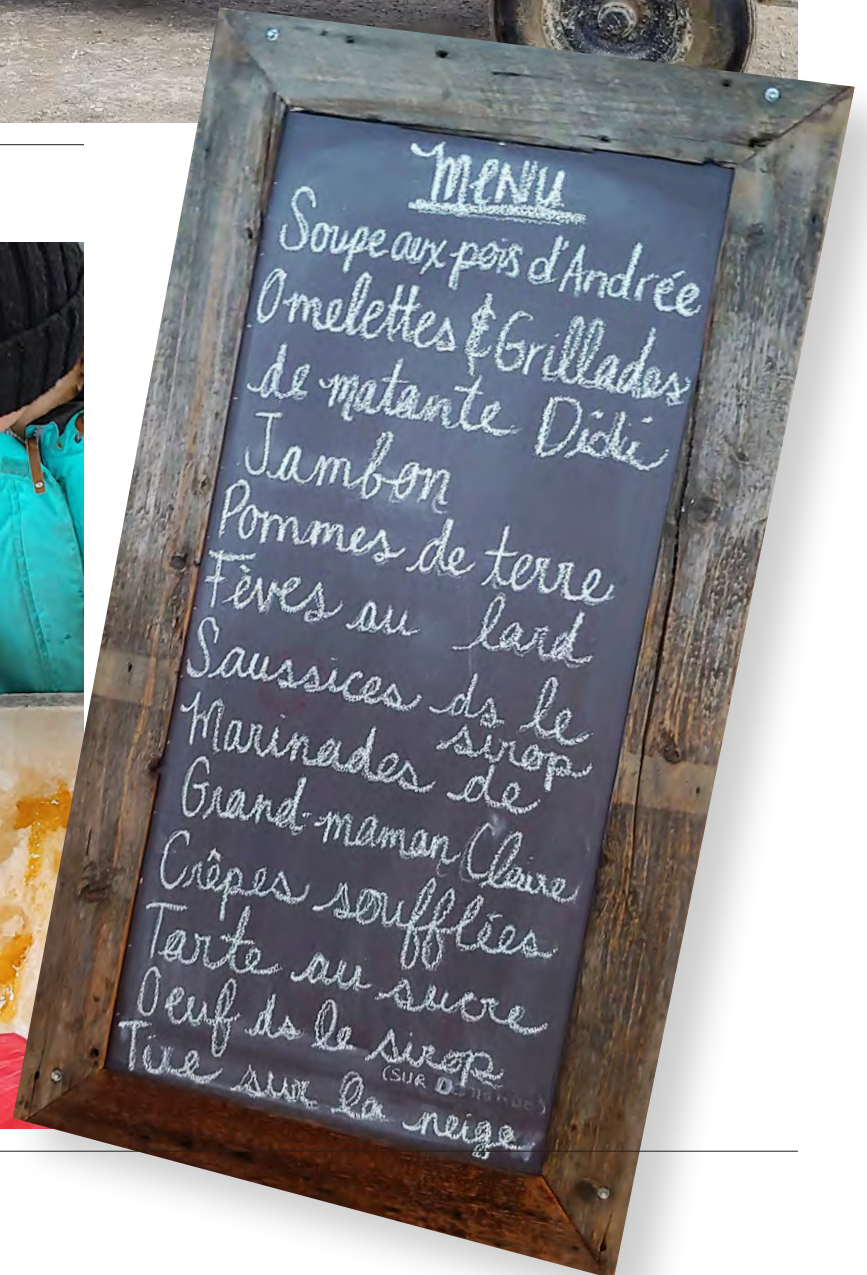 MENU
Soupe aux pois d'Andrée
Omelettes & Grillades
de matante Didi
Jambon
Pommes de terre
Fèves au lard
Saussices ds le
sirop
Marinades de
Grand-maman Claire
Crêpes soufflées
Tarte au sucre
Oeuf ds le sirop
(SUR DEMANDE)
Tire sur la neige